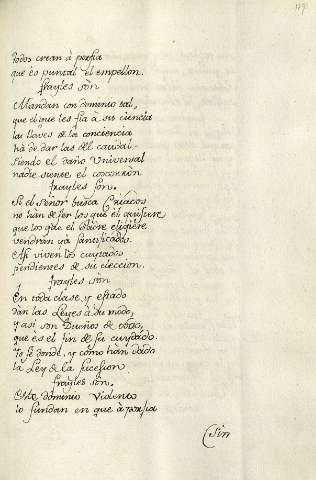 todos crean à porfia
que es puntal el empellon.
frayles sòn
Mandan con dominio tal,
que el que les fia à su ciencia
las llaves de la conciencia
hà de dar las del caudal
siendo el daño Universal
nadie siente el coscorron
frayles son.
Si el Señor busca Criados
no hàn de ser los que èl quisiere
que los que el Padre eligiere
vendràn yà santificados
Assi viven los cuytados
pendientes de su eleccion.
frayles sòn
En toda clase, y estado
dàn las Leyes à su modo,
y asi son Dueños de todo,
que es el fin de su cuydado.
Yo se donde, y còmo hàn dado
la Ley de la sucesion.
frayles sòn.
Este dominio violento
lo fundan en que à
Sin